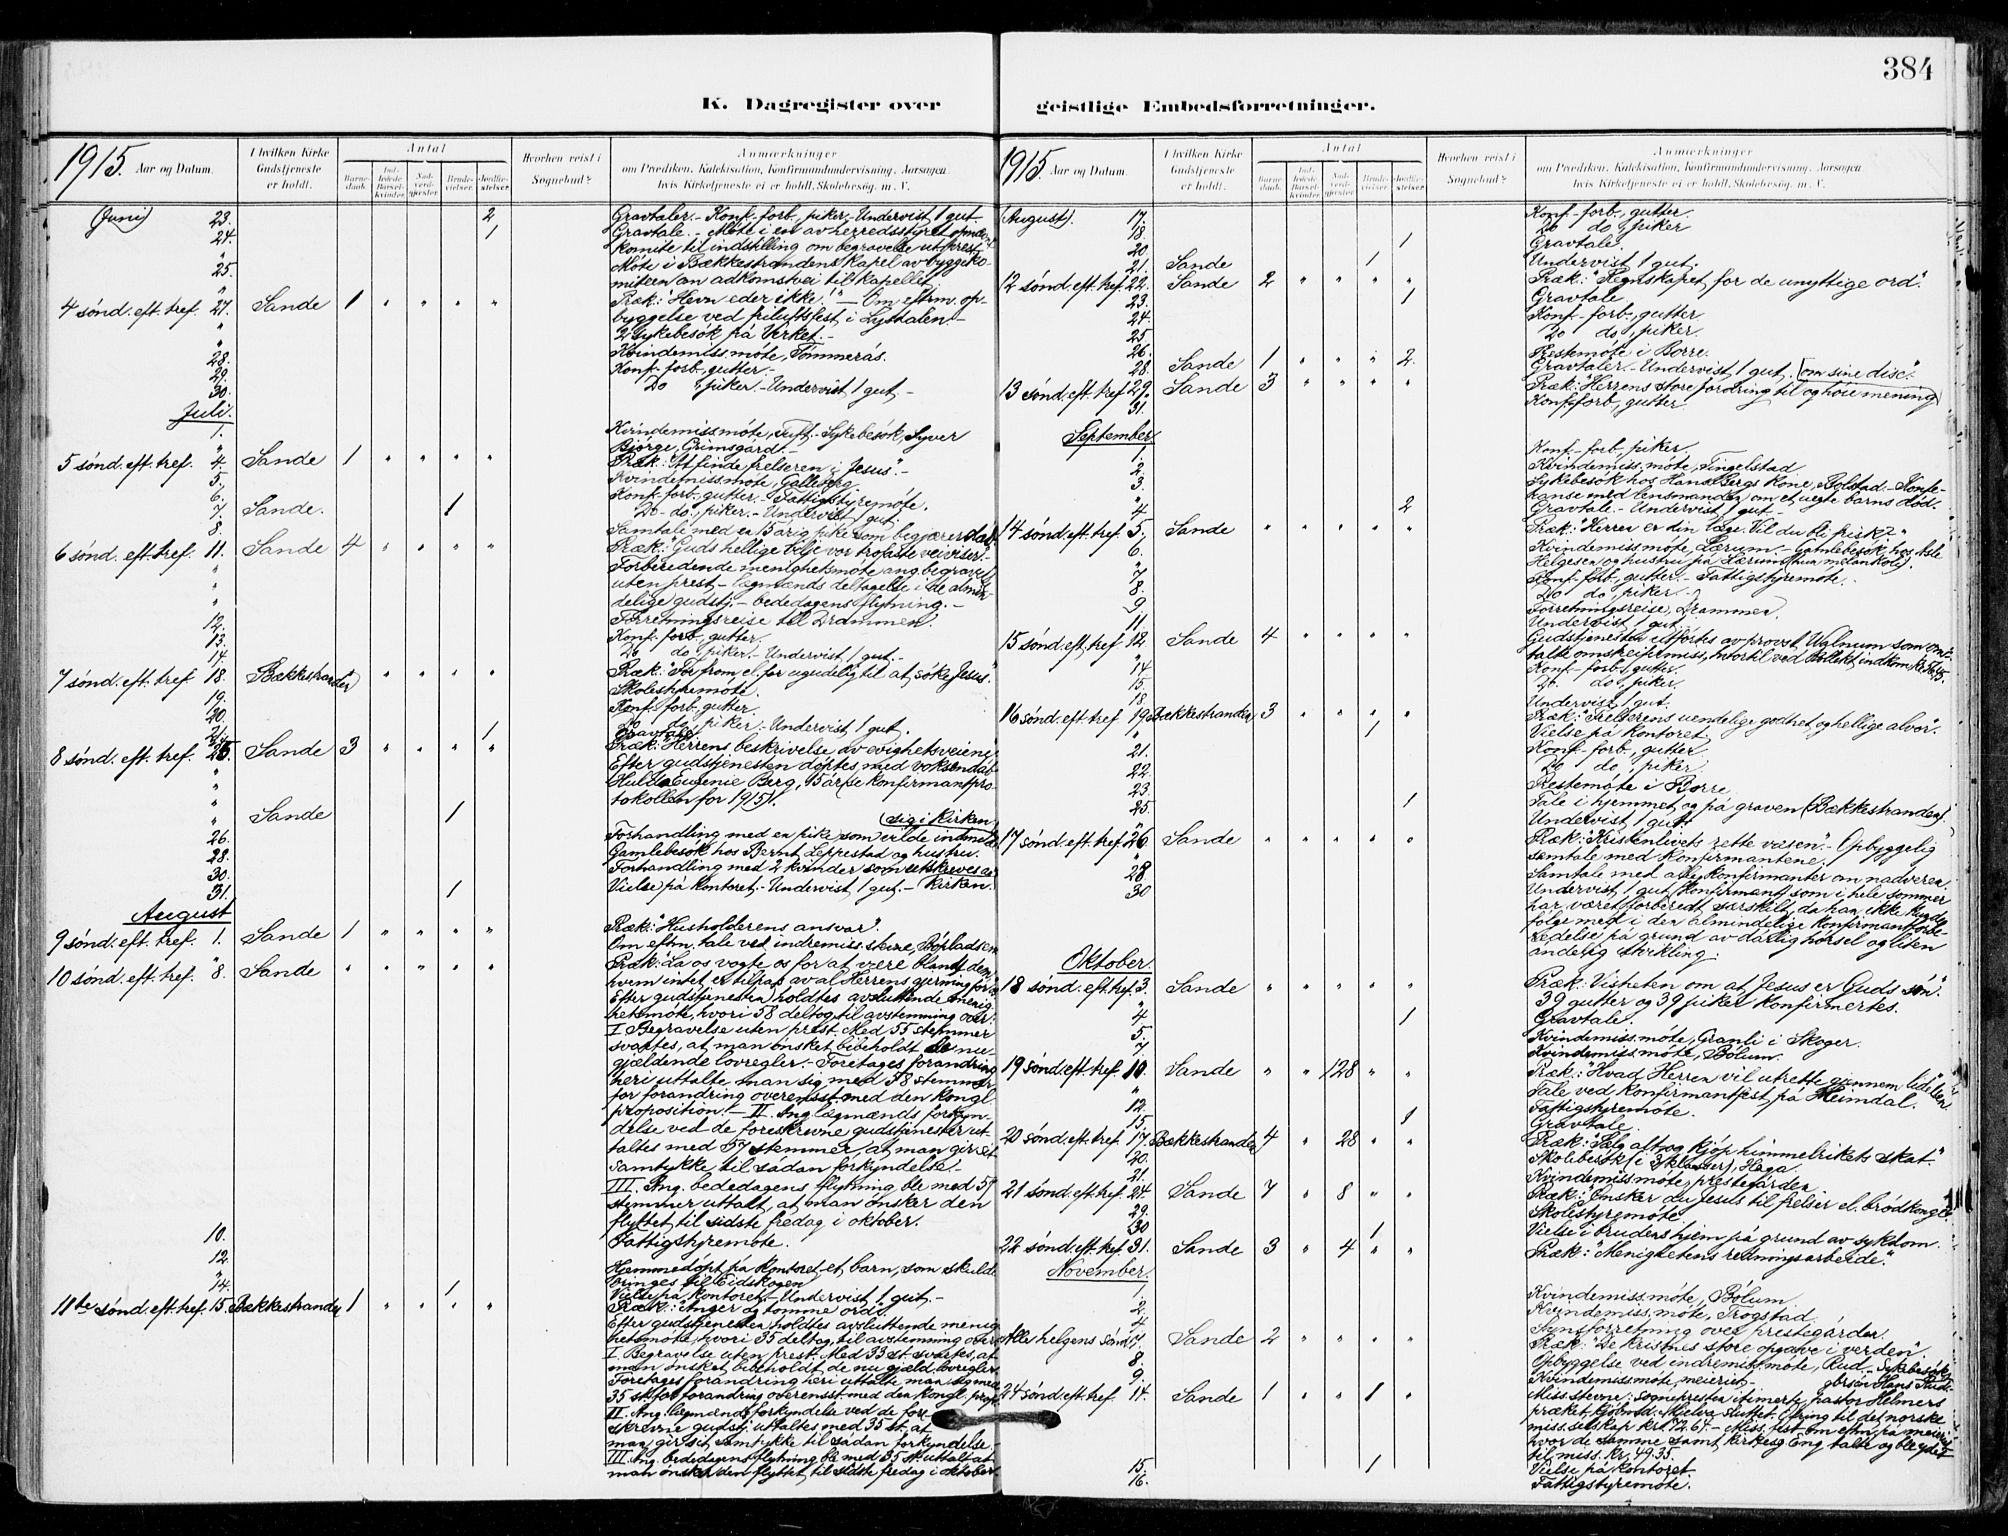 384
K. Dagregister over geistlige Embedsforretninger.
1915. Aar og Datum.
I hvilken Kirke Gudstjeneste er holdt.
Antal
Barnedaab.
Indledede Barselkvinder.
Nadverdgjester.
Brudevielser.
Jordfæstelser.
Hvorhen reist i Sognebud?
Anmærkninger
om Prediken, Katekisation, Konfirmandundervisning, Aarsagen
hvis Kirketjeneste ei er holdt, Skolebesøg m. V.
(Juni) 23. 2 Gravtaler.- Konf.-forb., piker.- Undervist 1 gut
24. 1 Gravtale.- Møte i en av herredsstyret opnævnt
komite til indstilling om begravelse ut. prest.
25. Møte i Bækkestrandens kapel av byggeko-
miteen an adkomstvei til kapellet.
4 sønd. eft. tref. 27. Sande 1 " " " " Præk: "Hevn eder ikke!" - Om eftrm. op-
byggelse ved friluftsfest i Lysdalen.-
2 sykebesøk på Verket.-
28. Kvindemiss.møte, Tømmerås.
29. Konf.-forb., gutter.-
30. Do piker.- Undervist 1 gut.-
Juli.
1. Kvindemissmøte, Tuft.- Sykebesøk, Syver
Bjørge, Grimsgård.-
5 sønd. eft. tref. 4. Sande 1 " " " " Præk: "At finde frelseren i Jesus.-
5. Kvindemiss.møte, Galleberg.
6. Konf.-forb., gutter.- Fattigstyremøte.
7. Sande. 1 Do- do. piker.- Undervist 1 gut.
8. Samtale med en 15 årig pike som begjærer dåb.
6 sønd. eft. tref. 11. Sande 4 " " " " Præk: "Guds hellige vilje vor trofaste veiviser.-
Forberedende menighetsmøte ang. begravel.
uten prest - lægmænds deltagelse i de almin-
delige gudstj.- bededagens flytning.-
12. Forretningsreise til Drammen.
13. Konf.-forb., gutter.
14. Do do. piker.- Undervist 1 gut.-
7 sønd. eft. tref. 18. Bækkestranden " " " " Præk: "For from el. for ugudelig til at søke Jesus."
19. Skolestyremøte.
20. Konf.-forb., gutter.
21. Do do. piker.- Undervist 1 gut.
1 Gravtale.
8 sønd. eft. tref. 25. Sande 3 " " " " Præk: "Herrens beskrivelse av evighetsveiene
Efter gudstjenesten døptes med voksendåb
Hulda Eugenie Berg, 15 år (se konfirmantpro-
tokollen for 1915).
" Sande 1 (sig i Kirken)
26. Forhandling med en pike som vilde indmelde
28. Gamlebesøk hos Bernt Leppestad og hustru.
30. Forhandling med 2 kvinder som utskreves av
31. 1 Vielse på kontoret.- Undervist 1 gut.- Kirken.
August
9 sønd. eft. tref. 1. Sande 1 " " " " Præk: "Husholderens ansvar".
Om eftm. tale ved indremiss.stevne,
10 sønd. eft. tref. 8. Sande " " " " " Præk: "La os vogte os for at være blandt dem,
hvem intet er tilpas av al Herrens gjerning for os
Efter gudstjenesten holdtes avsluttende menig-
hetsmøte, hvori 58 deltog til avstemning over:
I Begravelse uten prest. Med 55 stemmer
svartes, at man ønsket bibeholdt de nu-
gjældende lovregler.- Foretages forandring
heri uttalte man sig med 58 stemmer
for forandring overensst. med den kongl.
proposition.- II. Ang. lægmænds forkyn-
delse ved de foreskrevne gudstjenester ut-
taltes med 57 stemmer, at man gir sit
samtykke til sådan forkyndelse.-
III. Ang. bededagens flytning ble med 57
stemmer uttalt, at man ønsker den
flyttet til sidste fredag i oktober.
10. Fattigstyremøte.
12. Hjemmedøpt på kontoret et barn, som skulde
bringes til Eidskogen
14. 1 Vielse på kontoret.- Undervist 1 gut.-
11te sønd. eft. tref. 15. Bækkestranden 1 " " " " Præk: "Anger og tomme ord".
Efter gudstjenesten holdtes avsluttende menig-
hetsmøte, hvori 35 deltog til avstemning over
I Begravelse uten prest. Med 33 st. svartes, at
man ønsket bibeholdt de nu gjæld. lovregler.
Foretages forandring heri uttalte man sig med
35 st. for forandring overensst. med den kongl. prop.
II. Ang. lægmænds forkyndelse ved de fore-
skrevne gudstj. uttaltes med 35 st., at
man gir sit samtykke til sådan forkyndelse.-
III. Ang. bededagens flytning ble med 35 st. uttalt at
man ønsker den flyttet til sidste fredag i oktober.
1915. Aar og Datum.
I hvilken Kirke Gudstjeneste er holdt.
Antal
Barnedaab.
Indledede Barselkvinder.
Nadverdgjester.
Brudevielser.
Jordfæstelser.
Hvorhen reist i Sognebud?
Anmærkninger
om Prediken, Katekisation, Konfirmandundervisning, Aarsagen
hvis Kirketjeneste ei er holdt, Skolebesøg m. V.
(August). 17. Konf.-forb., gutter.
18. Do do., piker
20. 1 Gravtale.
21. Sande 1 Undervist 1 gut.
12 sønd. eft. tref. 22. Sande 2 " " " " Præk: "Regnskapet for de unyttige ord".
23. 1 Gravtale
24. Konf.-forb., gutter
25. Do do., piker.
26. Prestemøte i Borre.
28. Sande 1 " " " 2 Gravtaler.- Undervist 1 gut. (om sine disc."
13 sønd. eft. tref. 29. Sande 3 " " " " Præk: "Herrens store fordring til og høie mening
31. Konf.-forb., gutter
September.
1. Konf.-forb., piker
2. Kvindemiss.møte, Tingelstad
3. Sykebesøk hos Hans Bergs kone, Bolstad.- Konfe-
ranse med lensmanden om et uegte barns død.
4. 2 Gravtale.- Undervist 1 gut.-
14 sønd. eft. tref. 5. Sande " " " " " Præk: "Herren er din læge. Vil du bli frisk?"
6. Kvindemiss.møte, Lærum.- Gamlebesøk hos Asle
Helgesen og hustru på Lærum (hun melankoli).
7. Konf.-forb., gutter.- Fattigstyremøte.
8. Do do., piker.-
9. Forretningsreise, Drammen.
11. Undervist 1 gut.
15 sønd. eft. tref. 12. Sande 4 " " " " Gudstjenesten utførtes av provst Walnum som om-
talte omskeifermiss., hvortil ved kollekt indkom
14. Konf.-forb., gutter.
15. Do do., piker.
18. Undervist 1 gut.
16 sønd. eft. tref. 19. Bækkestranden 3 " " " " Præk: "Frelserens uendelige godhet og hellige alvor".
" 1 Vielse på kontoret.
21. Konf.-forb., gutter
22. Do do., piker.
23. Prestemøte i Borre
25. 1 Tale i hjemmet og på graven (Bækkestranden).
Undervist 1 gut
17 sønd. eft. tref. 26. Sande " " " " " Præk: "Kristenlivets rette væsen".- Opbyggelig
samtale med konfirmantene.
28 Samtale med alle konfirmanter om nadveren.
30 Undervist 1 gut (konfirmant) som i hele sommer
har været forberedt særskilt, da han ikke kunde
følge med i den almindelige konfirmantforbe-
redelse på grund av dårlig hørsel og liten
åndelig utvikling.
Oktober.
18 sønd. eft. tref. 3. Sande " " " " " Præk: "Visheten om at Jesus er Guds søn".
39 gutter og 39 piker konfirmertes.
4. 1 Gravtale.
5. Kvindemiss.møte, Granli i Skoger.
7. Kvindemiss.møte, Bølum.
19 sønd. eft. tref. 10. Sande " " 128 " " Præk: "Hvad Herren vil utrette gjennem lidelsen."
Tale ved konfirmantfest på Heimdal.
12. Fattigstyremøte.
15. 1 Gravtale.
20 sønd. eft. tref. 17. Bækkestranden 4 " 28 " " Præk: "Sælg alt og kjøp himmelrikets skat."
20. Skolebesøk (i 3 klasser), Haga.
21. Kvindemiss.møte, prestegården
21 sønd. eft. tref. 24. Sande 7 " 8 " " Præk: "Ønsker du Jesus til frelser el. brødkonge?
29. Skolestyremøte
30 1 Vielse i brudens hjem på grund av sykdom.
22 sønd. eft. tref. 31. Sande 3 " 4 " " Præk: "Menighetens redningsarbeide".
November.
1. Kvindemiss.møte, Bølum
2. Kvindemiss.møte, Trogstad.
4 Synsforretning over prestegården.
Alle helgens sønd. 7. Sande 2 " " " " Præk: "De kristnes store opgave i verden".
8. Opbyggelse ved indremiss.møte, Rud.- Sykebesøk
9. Kvindemissmøte, meieriet.-
24 sønd. eft. tref. 14. Sande 1 " " 1 " Miss.stevne; sognepresten timerte, pastor Helmers
præket, sluttet. Ofring til det norske
miss.selskap kr. 172.67.- Miss.fest om eftm. på meieriet
hvor de samme samt kirkesg. Eng talte og ble ydet
til miss. kr. 49.35.
15. 1 Vielse på kontoret.
16. Fattigstyremøte.